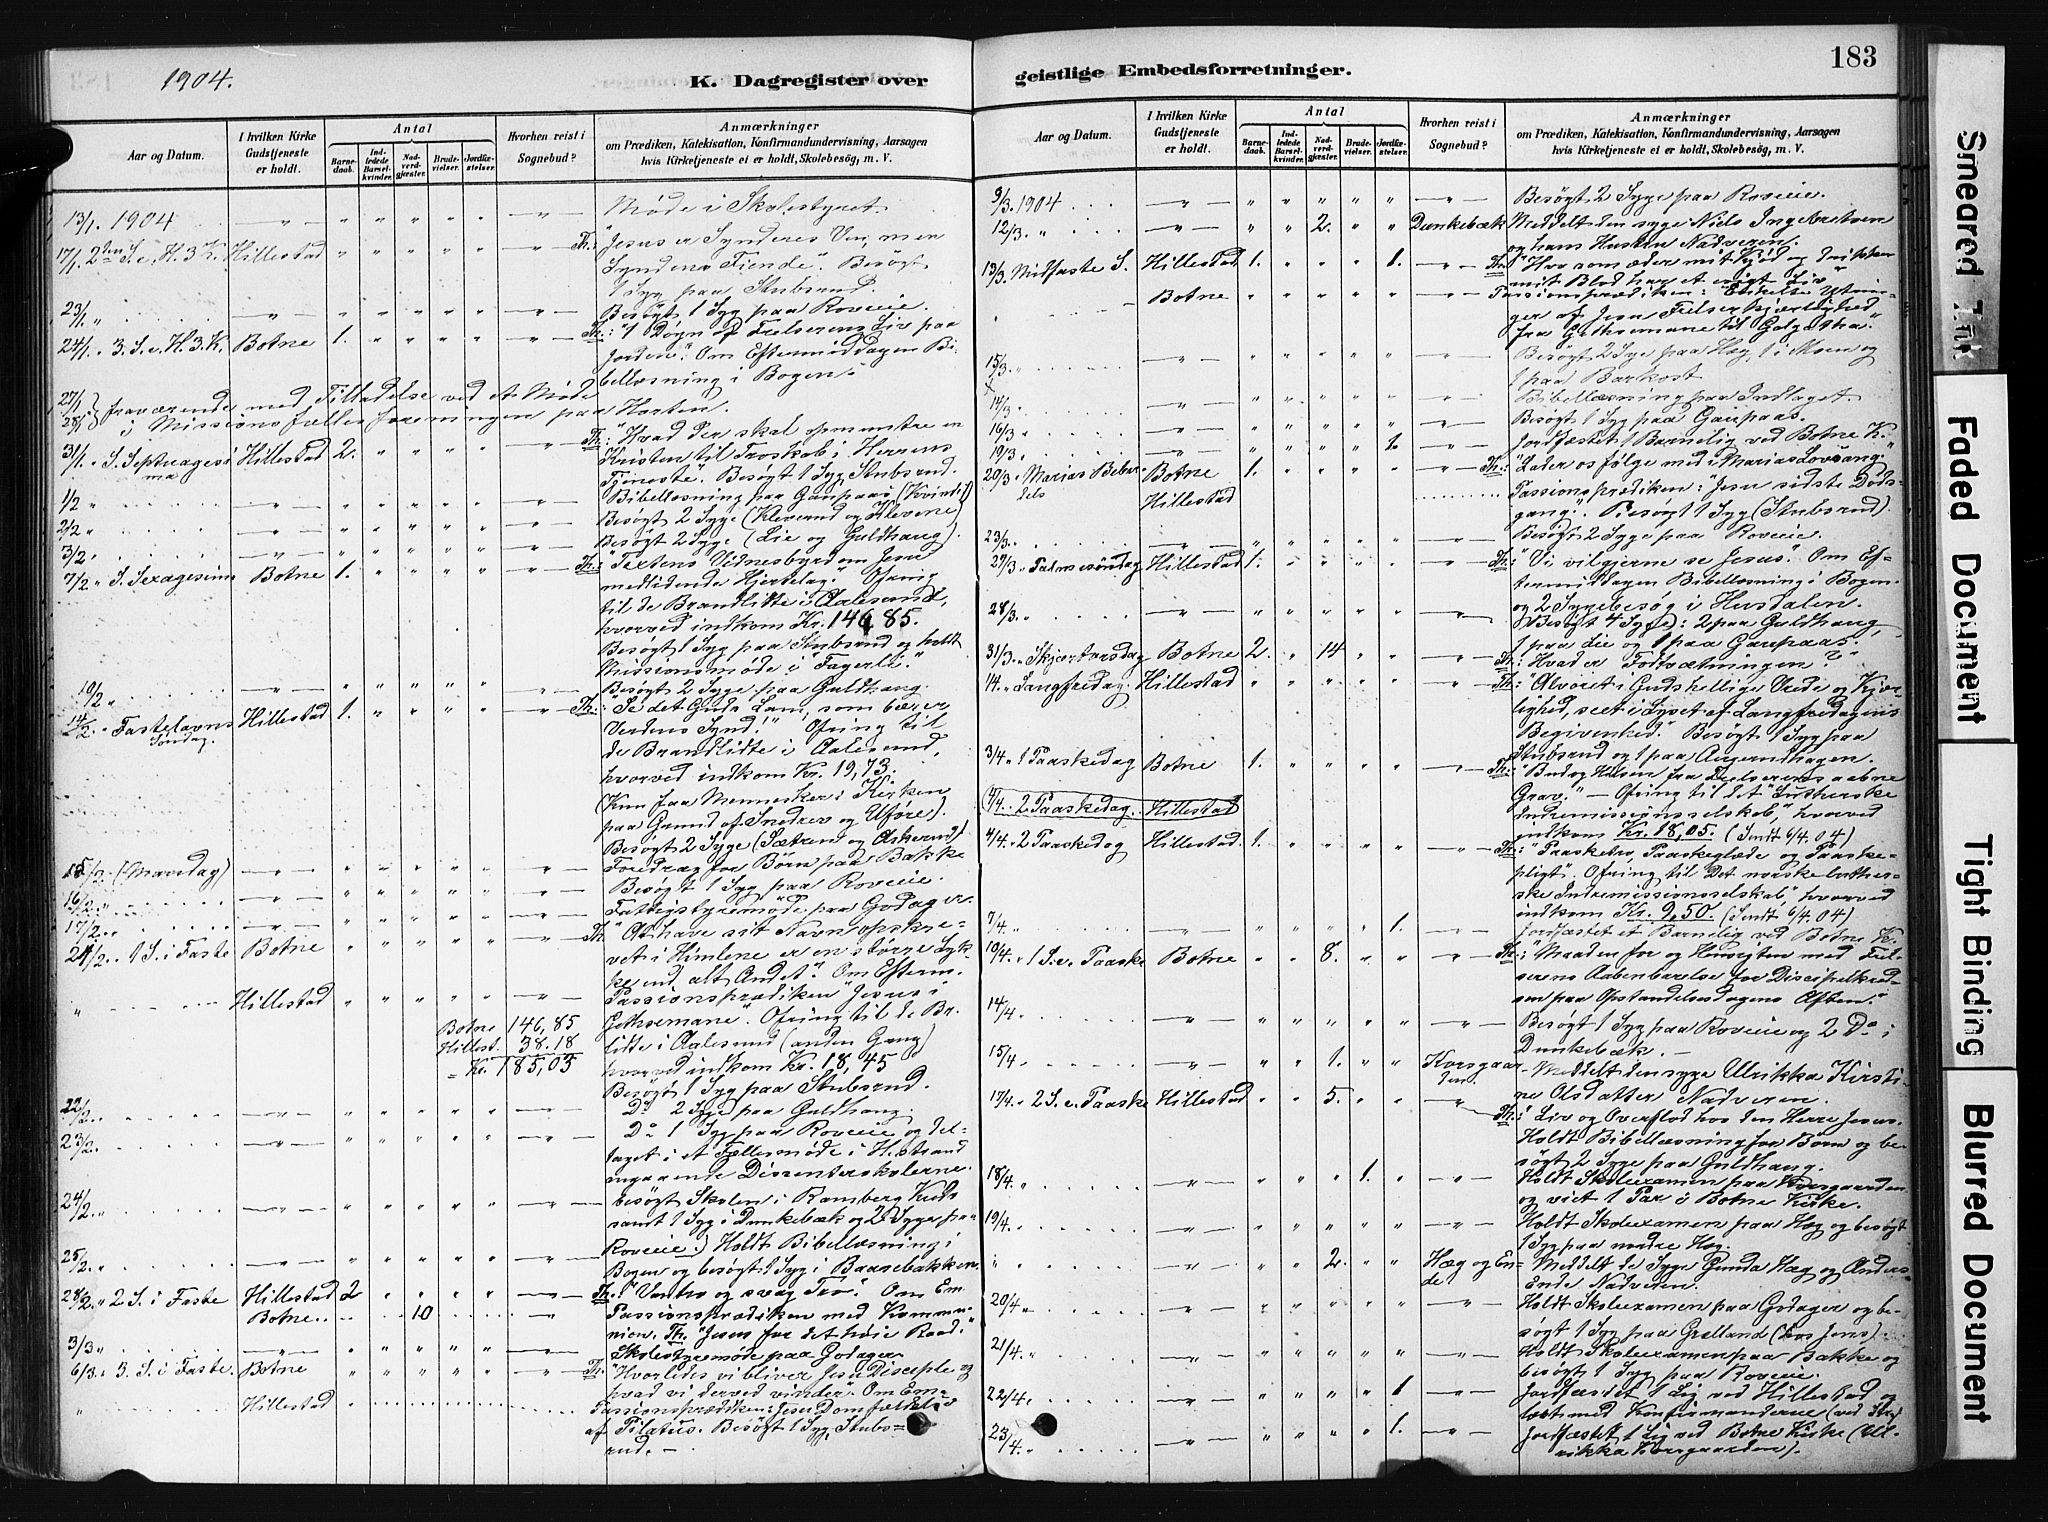 1904.
K. Dagregister over
Aar og Datum.
I hvilken Kirke Gudstjeneste er holdt.
Antal
Barnedaab.
Indledede Barselkvinder.
Nadverdgjæster.
Brudevielser.
Jordfæstelser.
Hvorhen reist i Sognebud?
Anmærkninger
om Prædiken, Katekisation, Konfirmandundervisning, Aarsagen
hvis Kirketjeneste ei er holdt, Skolebesøg, m. V.
13/1 1904 Møde i Skolestyret.
17/1 2den S. e. H. 3 K. Hillestad Th: "Jesus er Synderes Ven, men
Syndens Fiende". Besøgt
1 Syg paa Stubsrud.
23/1 " Besøgt 1 Syg paa Roveie.
24/1 " 3. S. e. H. 3 K. Botne 1. Th: "1 Døgn af Frelserens Liv paa
Jorden". Om Eftermiddagen Bi-
bellæsning i Bogen.
27/1
28/1 } fraværende med Tilladelse ved et Møde
i Missionsfællesforeningen paa Horten.
31/1 " S. Septuagesi- Hillestad 2. Th: "Hvad der skal opmuntre en
ma Kristen til Troskab i Herrens
Tjeneste". Besøgt 1 Syg Stubsrud.
1/2 " Bibellæsning paa Gaupaas (Kvindef)
2/2 " Besøgt 2 Syge (Kleverud og Klevene)
3/2 " Besøgt 2 Syge (Lie og Guldhaug).
7/2 " S. Sexagesima Botne 1. Th: "Textens Vidnesbyrd om Jesu
medlidende Hjertelag." Ofring
til de Brandlidte i Aalesund,
hvorved indkom Kr. 146,85.
Besøgt 1 Syg paa Stubsrud og holdt
Missionsmøde i Fagerli."
10/2 " Besøgt 2 Syge paa Guldhaug.
14/2 " Fastelavns Hillestad 1. Th: "Se det Guds Lam, som bærer
Søndag. Verdens Synd!" Ofring til
de Brandlidte i Aalesund,
hvorved indkom Kr. 19,73.
(Kun faa Mennesker i Kirken
paa Grund af Snedrev og Uføre).
Besøgt 2 Syge (Sætren og Askerud)
15/2. (Mandag) Foredrag for Børn paa Bakke
16/2 " Besøgt 1 Syg paa Roveie.
17/2 " Fattigstyremøde paa Godager
21/2 " 1 S. i Faste Botne Th: "At have sit Navn opskre-
vet i Himlene er en større Lyk-
ke end alt Andet". Om Efterm.
" Hillestad Passionsprædiken "Jesus i
Botne 146,85 Gethsemane". Ofring til de Br.
Hillest. 38.18 lidte i Aalesund (anden Gang)
= Kr. 185,03 hvorved indkom Kr. 18,45
Besøgt 1 Syg paa Stubsrud.
22/2 " Do 2 Syge paa Guldhaug.
23/2 " Do 1 Syg paa Roveie og del-
taget i et Fællesmøde i H.strand
angaaende Dissenterskolerne.
24/2 " besøgt Skolen i Ramberg Kreds
samt 1 Syg i Dunkebæk og 2 Syge paa
Roveie.) Holdt Bibellæsning i
25/2 " Bogen og besøgt 1 Syg i Baasebakken.
28/2 " 2 S. i Faste Hillestad 2 Th: "Vantro og svag Tro". Om Em
Botne 10 Passionsprædiken med Kommu-
nion. Th. "Jesus for det høie Raad."
3/3 " Skolestyremøde paa Godager
6/3 " 3. S. i Faste. Botne Th: "Hvorledes vi bliver Jesu Disciple og
hvad vi derved vinder". Om Em-
" Hillestad Passionsprædiken: Jesu Domfældelse
af Pilatus. Besøgt 1 Syg, Stubs-
rud. —
geistlige Embedsforretninger.
183
Aar og Datum.
I hvilken Kirke Gudstjeneste er holdt.
Antal
Barnedaab.
Indledede Barselkvinder.
Nadverdgjæster.
Brudevielser.
Jordfæstelser.
Hvorhen reist i Sognebud?
Anmærkninger
om Prædiken, Katekisation, Konfirmandundervisning, Aarsagen
hvis Kirketjeneste ei er holdt, Skolebesøg, m. V.
9/3 1904 Besøgt 2 Syge paa Roveie.
12/3 " 2. Dunkebæk Meddelt den syge Niels Ingebretsen
og hans Hustru Nadveren.
13/3 Midfaste S. Hillestad 1. 1. Th: "Hvo som æder mit Kjød og drikker
mit Blod har et evigt Liv"
" Botne Passionsprædiken: "Enkelte Ytrin-
ger af Jesu Frelserkjærlighed
fra Gethsemane til Golgatha."
15/3 Besøgt 2 Syge paa Høg, 1 i Moen og
1 paa Barkost
14/3 Bibellæsning paa Indlaget.
16/3 Besøgt 1 Syg paa Gaupaas.
19/3 1. Jordfæstet 1 Barnelig ved Botne K.
20/3 " Marias Bebu- Botne 1. Th: "Lader os følge med i Marias Lovsang"
delse Hillestad Passionsprædiken: "Jesu sidste Døds-
gang". Besøgt 1 Syg (Stubsrud).
23/3 Besøgt 2 Syge paa Roveie.
27/3 " Palmesøndag Hillestad 1. Th: "Vi vil gjerne se Jesus". Om Ef-
termiddagen Bibellæsning i Bogen
og 2 Sygebesøg i Husdalen.
28/3 " Besøgt 4 Syge: 2 paa Guldhaug,
1 paa Lie og 1 paa Gaupaas.
31/3 " Skjærtorsdag Botne 2. 14 Th: "Hvad er Fodtvætningen?"
1/4. " Langfredag. Hillestad Th: "Alvoret i Guds hellige Vrede og Kjær-
lighed, seet i Lyset af Langfredagens
Begivenhed." Besøgt 1 Syg paa
Stubsrud og 1 paa Augerudhagen.
3/4 " 1 Paaskedag Botne 1. Th: "Bud og Hilsen fra Frelserens aabne
Grav." — Ofring til det "Lutherske
4/4. 2 Paaskedag. Hillestad Indremissionsselskab," hvorved
indkom Kr. 18,05. (Sendt 6/4. 04)
4/4. 2 Paaskedag Hillestad 1. Th: "Paasketro, Paaskeglæde og Paaske-
pligt". Ofring til "Det norske luther-
ske Indremissionsselskab," hvorved
indkom Kr. 9,50. (Sendt 6/4. 04)
7/4. 1. Jordfæstet et Barnelig ved Botne K.
10/4. " 1 S. e. Paaske Botne 8. Th: "Maaden for og Hensigten med Frel-
serens Aabenbarelse for Discipelkred-
sen paa Opstandelsesdagens Aften."
14/4. Besøgt 1 Syg paa Roveie og 2 Do i
Dunkebæk. —
15/4. 1. Korsgaarden Meddelt den syge Ulrikka Kirsti-
ne Olsdatter Nadveren.
17/4. " 2 S. e. Paaske Hillestad 5. Th: "Liv og Overflod hos den Herre Jesus.
Holdt Bibellæsning for Børn og be-
søgt 2 Syge paa Guldhaug.
18/4. " 1 Holdt Skoleexamen paa Korsgaarden
og viet 1 Par i Botne Kirke.
19/4. Holdt Skoleexamen paa Høg og besøgt
1 Syg paa nordre Høg.
" 2. Høg og En- Meddelt de Syge Gunda Høg og Anders
de Ende Nadveren.
20/4 " Holdt Skoleexamen paa Godager og be-
søgt 1 Syg paa Grelland (Los Jens).
21/4 " Holdt Skoleexamen paa Bakke og
besøgt 1 Syg paa Roveie.
22/4. 1 Jordfæstet 1 Lig ved Hillestad og
læst med Konfirmanderne (ved Syg)
23/4. " 1. Jordfæstet 1 Lig ved Botne Kirke (Ul-
rikka Korsgaarden).
Smeared Ink
Faded Document
Tight Binding
Blurred Document